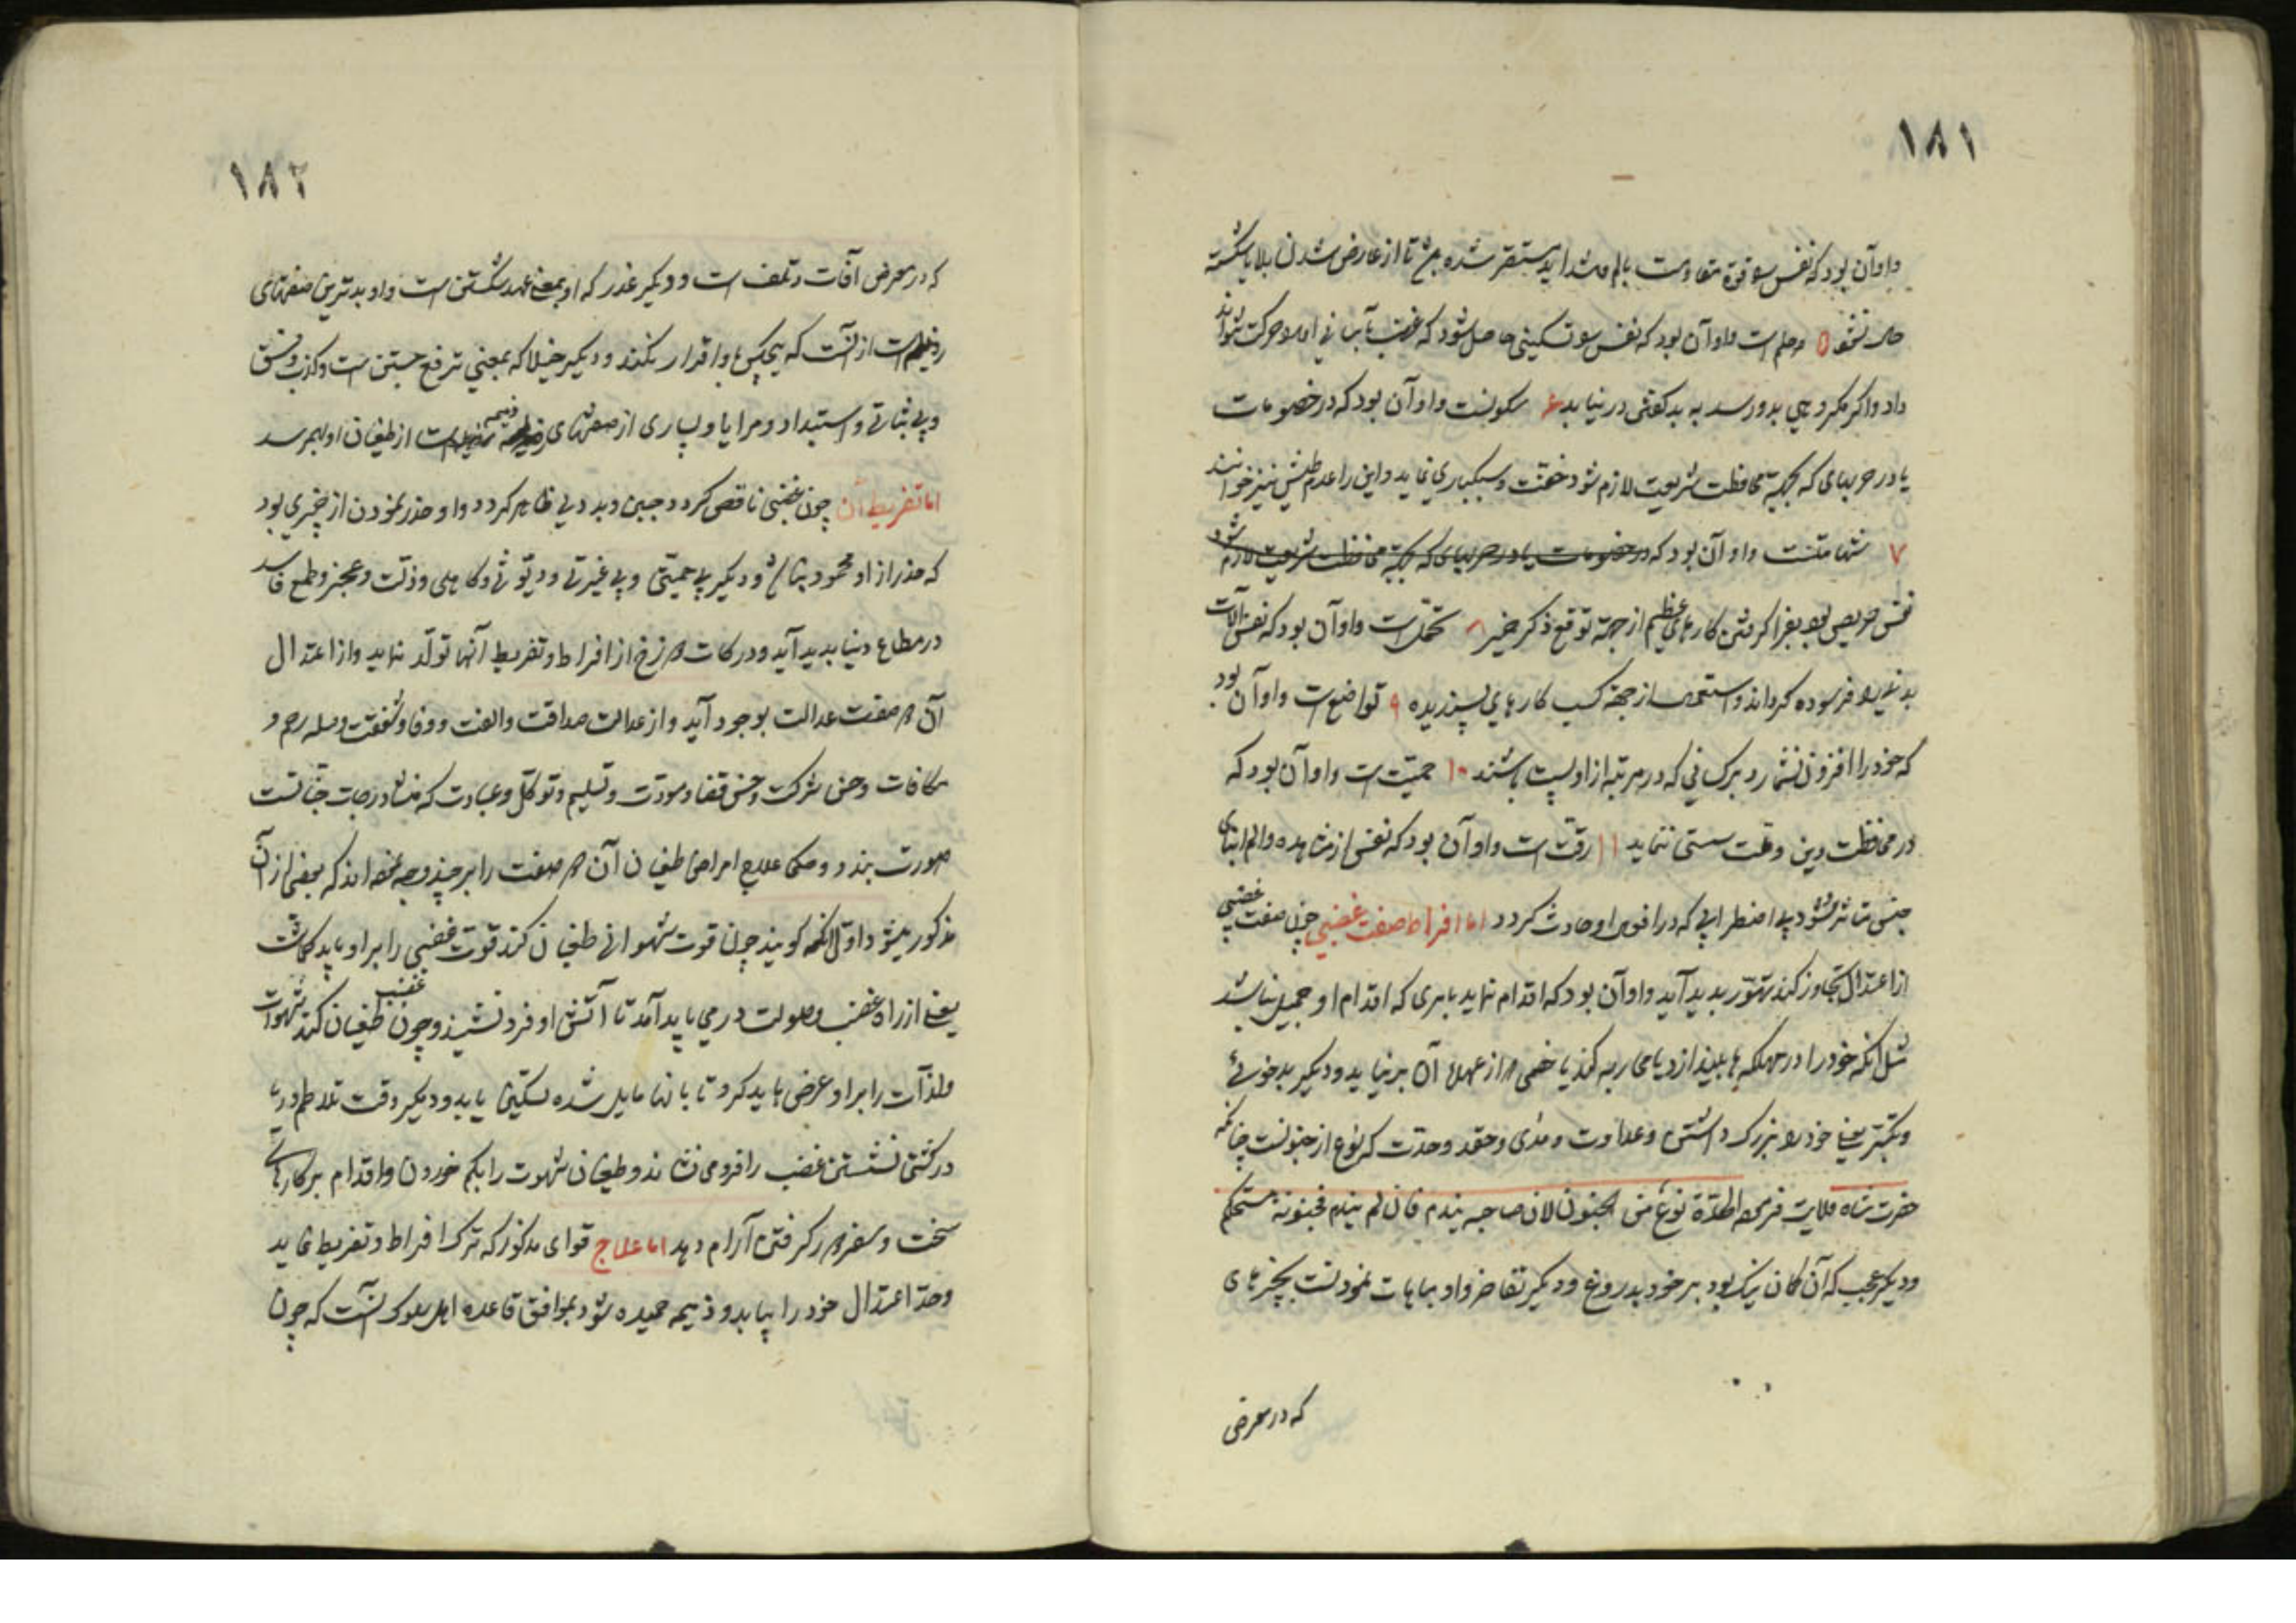 ١٨١
و او آن بود که نفس را قوة مقاومت بآلام و شداید مستقر شده باشد تا از عارض شدن بلایا شکسته
حال نشود ٥ حلم است و او آن بود که نفس را تسکینی حاصل شود که غضب بآسانی او را حرکت نتواند
داد و اگر مکروهی بدو رسد به بد گفتن در نیاید ۶ سکونست و او آن بود که در خصومات
یا در حربهای که بجهة محافظت شریعت لازم شود خفت و سبکباری ننماید و این را عدم طیش نیز خوانند
٧ شهامتست و او آن بود که در خصومات یا در حربهای که بجهة محافظت شریعت لازم شود
نفس حریص بود بفرا گرفتن کارهای عظیم از جهة توقع ذکر خیر ٨ تحمل است و او آن بود که نفس آلات
بدنی را فرسوده گرداند و استعمال از جهة کسب کارهای پسندیده ٩ تواضع است و او آن بود
که خود را افزون نشمارد بر کسانی که در مرتبه از او پست باشند ١٠ حمیت است و او آن بود که
در محافظت دین و ملت سستی ننماید ١١ رقت است و او آن بود که نفس از مشاهده و الم ابنای
جنس متأثر شود بی اضطرابی که در افعال او حادث گردد اما افراط صفت غضبی چون صفت غضبی
از اعتدال تجاوز کند تهوّر پدید آید و او آن بود که اقدام نماید بامری که اقدام او جمیل نباشد
مثل آنکه خود را در مهلکه ها بیندازد یا محاربه کند با خصمی که از عهدهٔ آن بر نیاید و دیگر بدخوئی
و تکبّر یعنی خود را بزرگ داشتن و عداوت و حقد و حدّت که نوع از جنونست چنانکه
حضرت شاه ولایت فرموده الحدّة نوع من الجنون لان صاحبه یندم فان لم یندم فجنونه مستحکم
و دیگر عجب که آن گمان نیک بود بر خود بدروغ و دیگر تفاخر و او مباهات نمودنست بچیزهای
که در معرض
١٨٢
که در معرض آفات و تلف است و دیگر غدر که او بمعنی عهد شکستن است و او بدترین صفتهای
رذیله است از آنست که هیچکس باو اقرار نکند و دیگر خیلا که بمعنی ترفع جستن است و کذب و فسق
و بی ثباتی و استبداد و مرایا و بسیاری از صفتهای ذمیمه از طغیان او بهم رسد
اما تفریط آن چون غضبی ناقص گردد جبن و بددلی ظاهر گردد و او حذر نمودن از چیزی بود
که حذر از او محمود نباشد و دیگر بی حمیتی و بی غیرتی و دیوثی و کاهلی و ذلت و عجز و طمع فاسد
در مطاع دنیا پدید آید و درکات دوزخ از افراط و تفریط آنها تولّد نماید و از اعتدال
آن صفت عدالت بوجود آید و از عدالت صداقت و الفت و وفا و شفقت و صله رحم و
مکافات و حسن شرکت و حسن قضا و مودّت و تسلیم و توکل و عبادت که منشأ درجات جنانست
صورت بندد و حکما علاج امراض طغیان آن صفت را بر چند وجه نموده اند که بعضی از آن
مذکور میشود اوّل آنکه گویند چون قوت شهوانی طغیان کند قوت غضبی را بر او باید گماشت
یعنی از راه غضب و صولت در می باید آمد تا آتش او فرو نشیند و چون غضب طغیان کند شهوات
و لذّات را بر او عرض باید کرد تا بانها مایل شده تسکین یابد و دیگر وقت تلاطم دریا
در کشتی نشستن غضب را فرو می نشاند و طغیان شهوت را بکم خوردن و اقدام بر کارهای
سخت و سفر گرفتن آرام دهد اما علاج قوای مذکور که ترک افراط و تفریط نماید
و حدّ اعتدال خود را بیابد و ذمیمه حمیده شود بموافق قاعده اهل سلوک آنست که چون